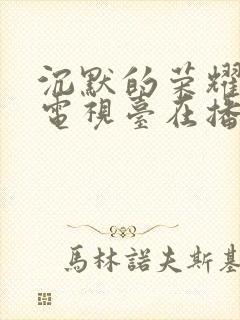 沉默的荣耀
電視臺在播
馬林諾夫斯基